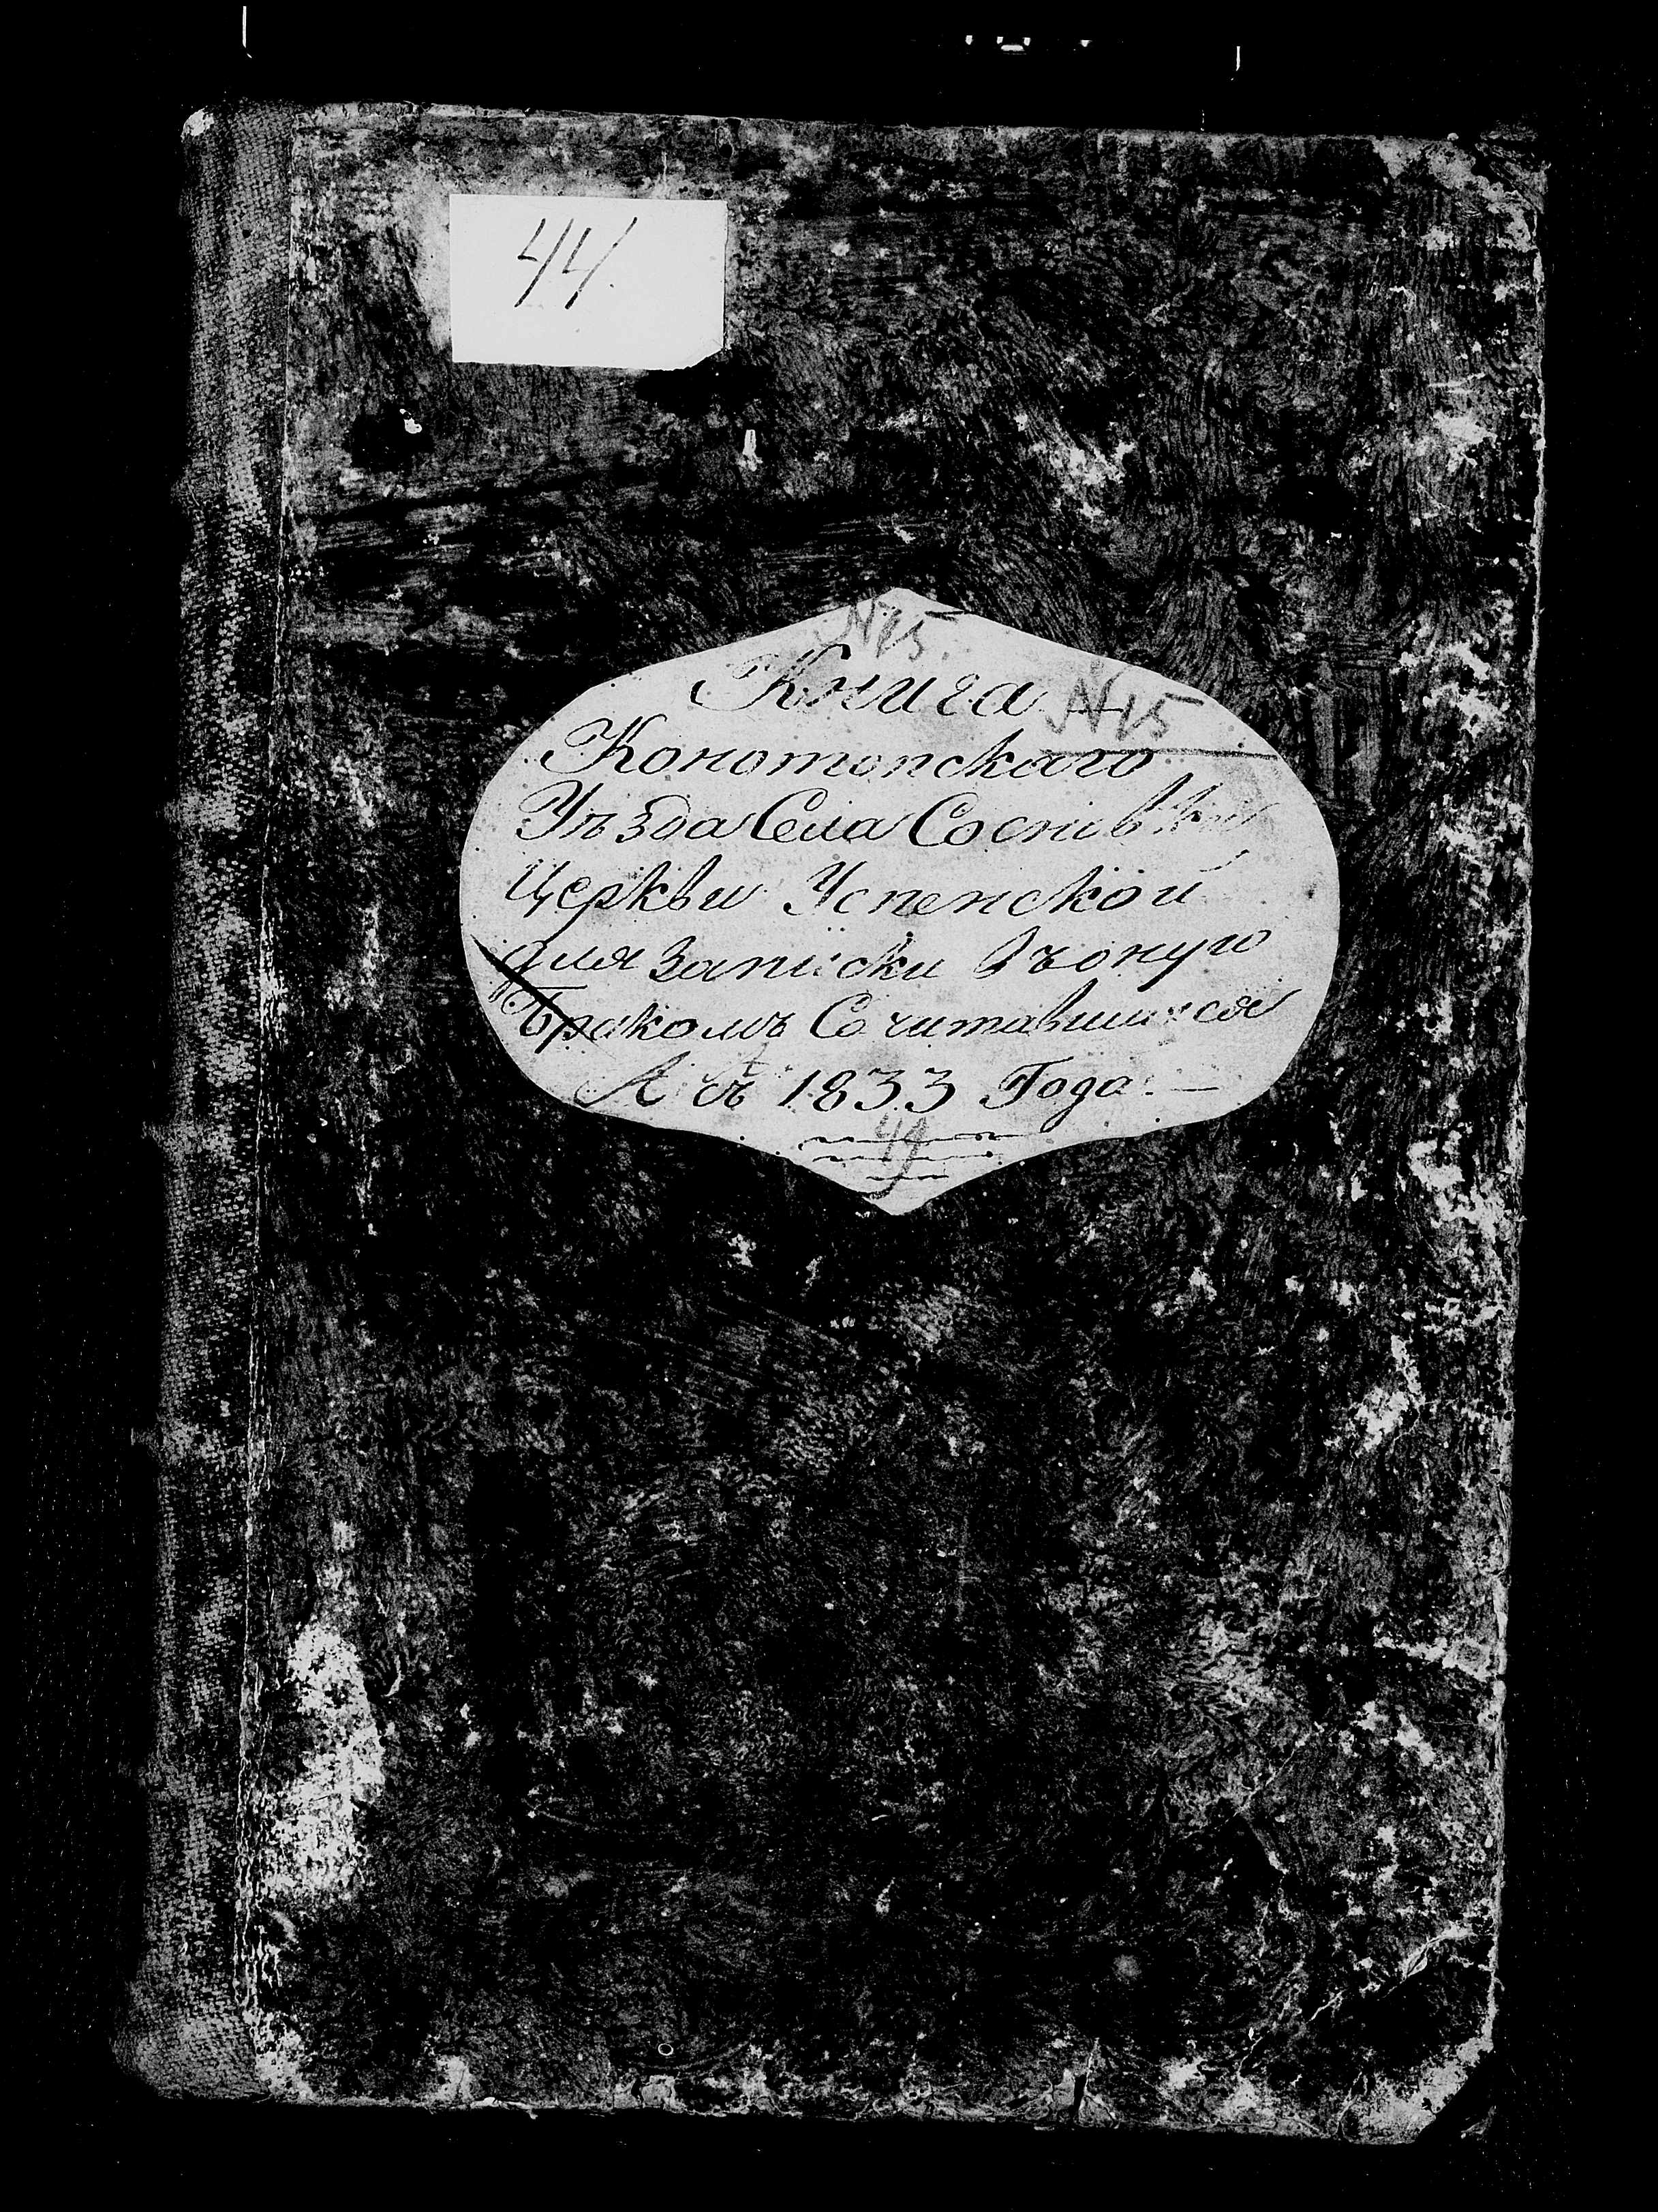 44.
N15.
Книга N15
Конотопскаго
Уѣзда Села Сосновки
Церкви Успенской
для записки въ оную
Бракомъ Сочитавшихся
Съ 1833 Года. —